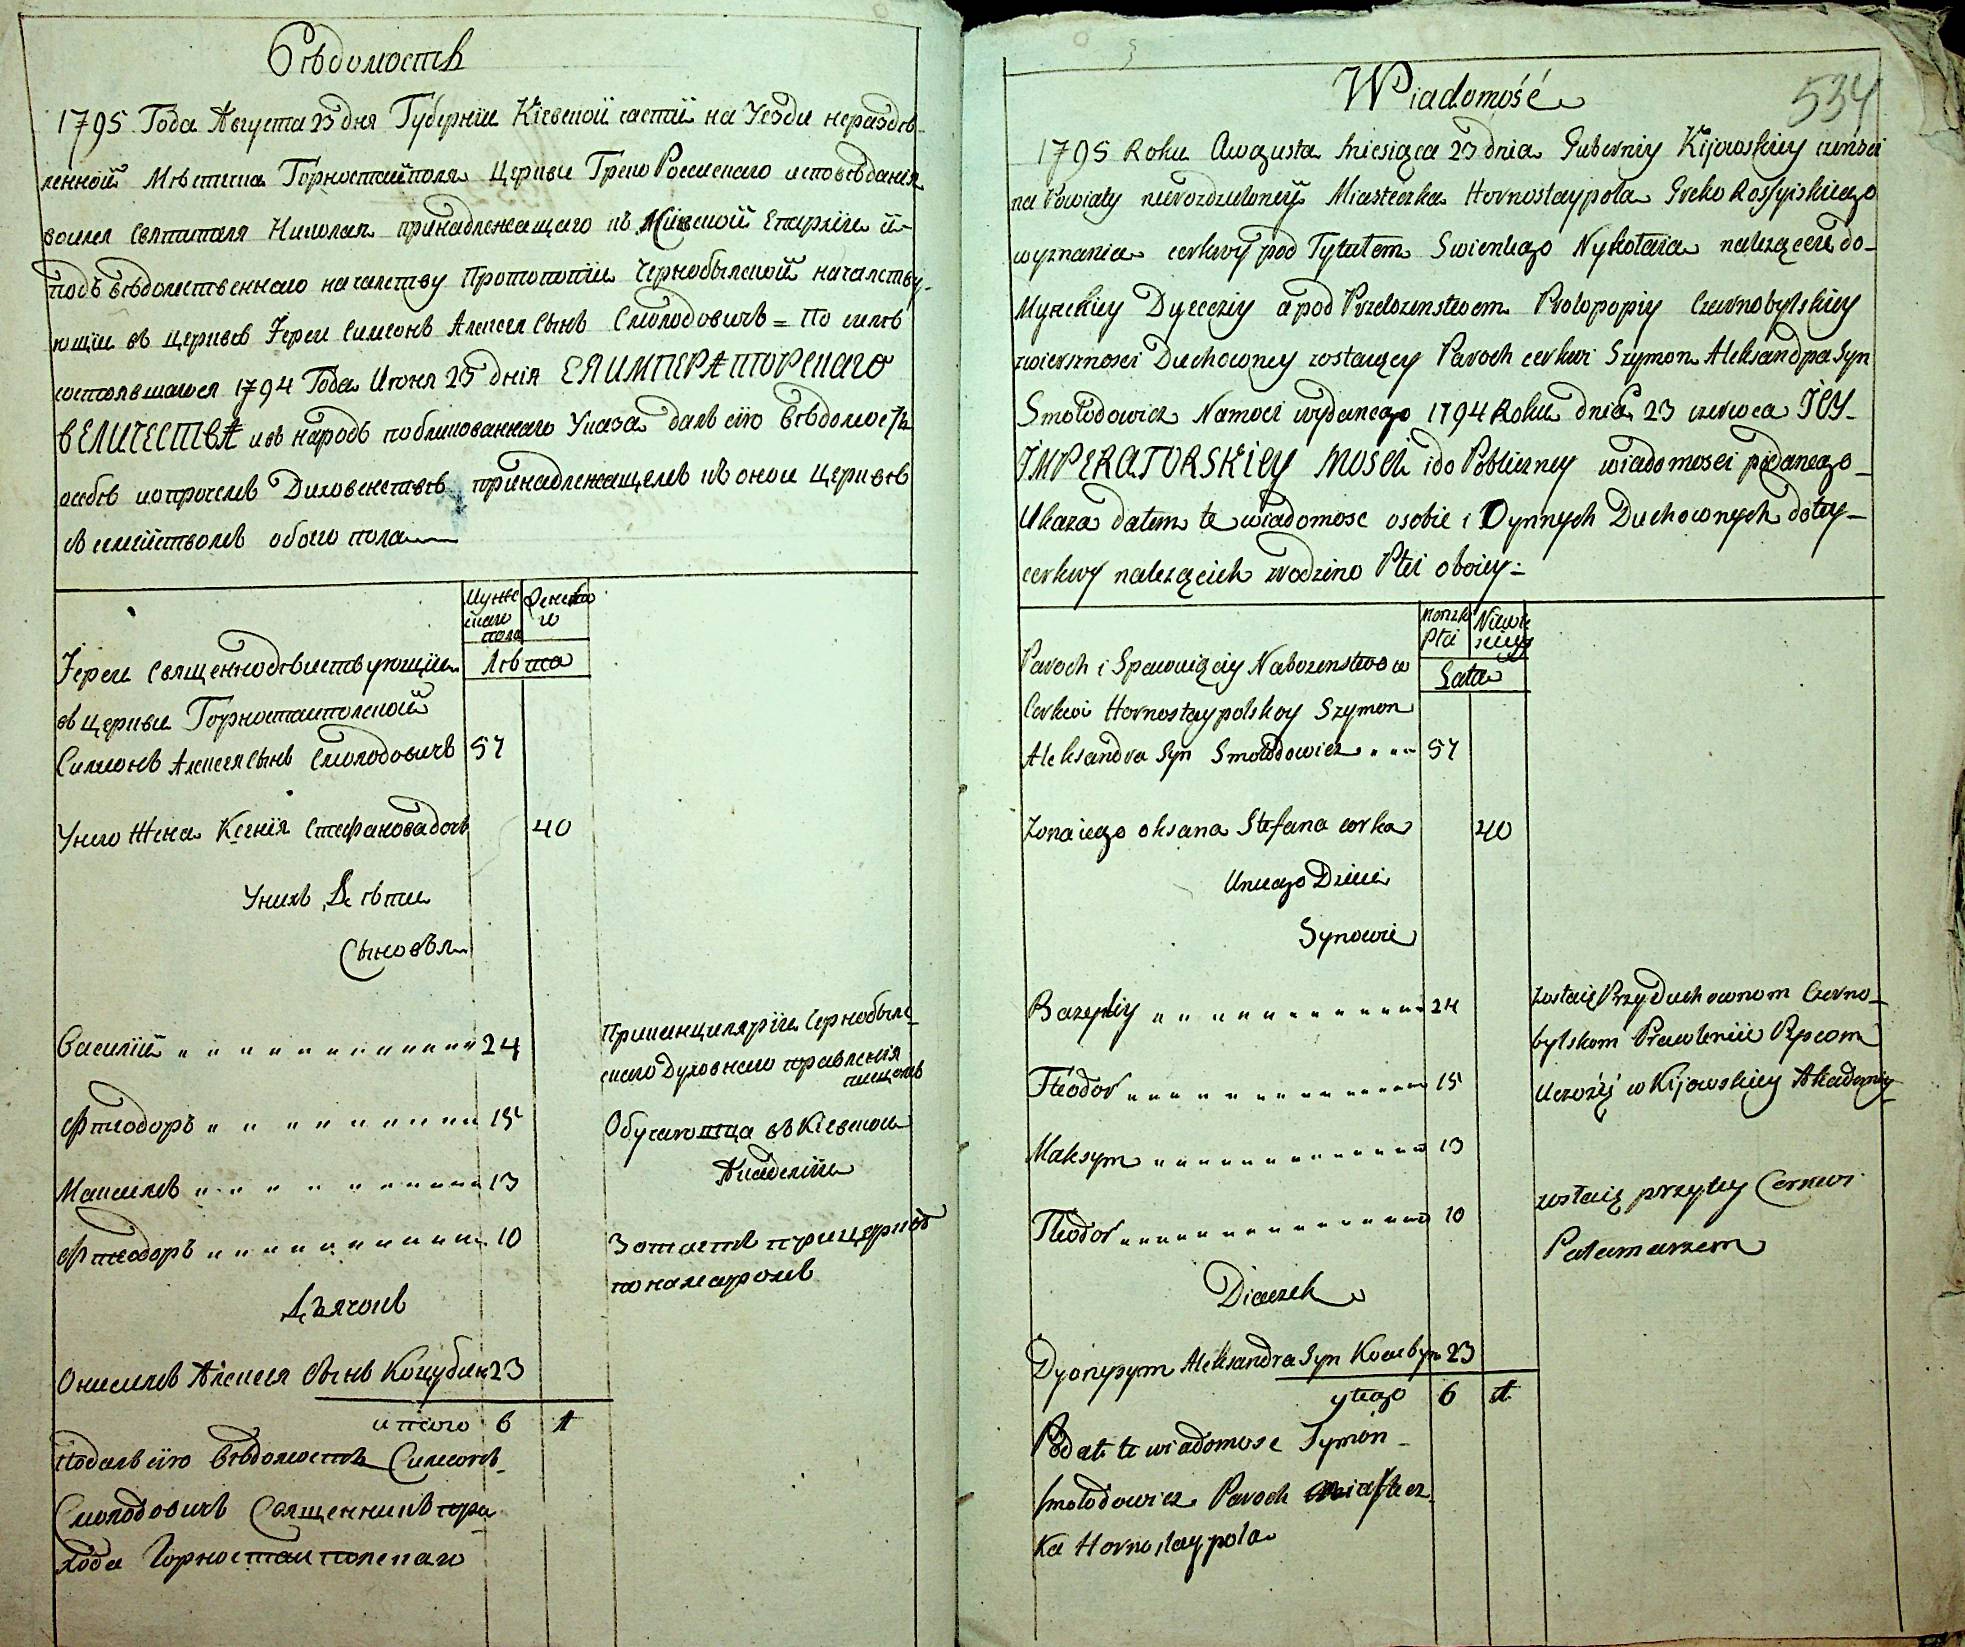 Вѣдомость
1795 Года Августа 23 дня Губернїи Кіевской части на Уезди нераздѣ-
ленной Мѣстечка Горностайполя Церкви Греко Россискаго исповѣданія
Святителя Николая принадлежащаго къ Кіевской Епархїи и
подъ вѣдомственнаго началству Протопопїи Чернобылской началству-
ющїи въ церквѣ Іереи Симеонъ Алексея Сынъ Смолодовичъ = По силѣ
состоявшагося 1794 Года Июня 23 днія ЕЯ ИМПЕРАТОРСКАГО
ВЕЛИЧЕСТВА и въ народъ публикованнаго Указа далъ сїю вѣдомость
о себѣ и о прочемъ Духовенствѣ принадлежащемъ къ оной Церквѣ
съ семействомъ обоего пола
Муже
скаго
пола
Женска
го
Лѣта
Іереи Священнодѣиствующїи
въ церкви Горностаиполской
Симеонъ Алексея Сынъ Смолодовичъ 57
У него Жена Ксенія Стефанова дочъ 40
У нихъ Дѣти
Сыновья
Василїй 24
При канцелярїи Чернобыл-
скаго Духовнаго правленія
писцомъ
Фтеодоръ 15
Обучаютца въ Кіевской
Академїи
Максимъ 13
Фтеодоръ 10
Зостаетъ при церквѣ
понамаромъ
Дъячокъ
Онисимъ Алексея Сынъ Коцубин 23
итого 6 1
Подалъ сїю вѣдомость Симеонъ
Смолодовичъ Священникъ при-
хода Горностаиполскаго
534
Wiadomość
1795 Roku Augusta miesiąca 23 dnia Guberniy Kijowskiey części
na Powiaty nierozdzieloney Miasteczka Hornostaypola Greko Rossyiskiego
wyznania cerkwy pod Tytułem Swientego Nykołaia należącey do
Myńskiey Dyeceziy a pod Przełozenstwem Protopopiy Czernobylskiey
zwierzności Duchowney zostaiący Paroch cerkwi Szymon Aleksandra Syn
Smołodowicz Namoci wydanego 1794 Roku dnia 23 czerwca JEY
IMPERATORSKIEY MOSCI i do Publiczney wiadomosci podanego
Ukaza dałem tę wiadomosc o sobie i Dynnych Duchownych do tey
cerkwy należących z rodzino Płci oboiey
Męnzk
Płci
Niewie
sciey
Lata
Paroch i Sprawuiący Nabozenstwo w
Cerkwi Hornostaypolskoy Szymon
Aleksandra Syn Smołodowicz 57
Zona iego oksana Stefana corka 40
U niego Dzieci
Synowie
Bazyliy 24
zostaię Przy Duchownom Czerno-
bylskom Prawleniie Pyscom
Fteodor 15
Uczący w Kijowskiey Akademiy
Maksym 13
zostaię przy tey Cerkwi
Fteodor 10
Pałamarzem
Diaczek
Dyonyzym Aleksandra Syn Kocubyn 23
ytego 6 1
Podał te wiadomosc Symon
Smołodowicz Paroch Miastecz
ka Hornostaypola